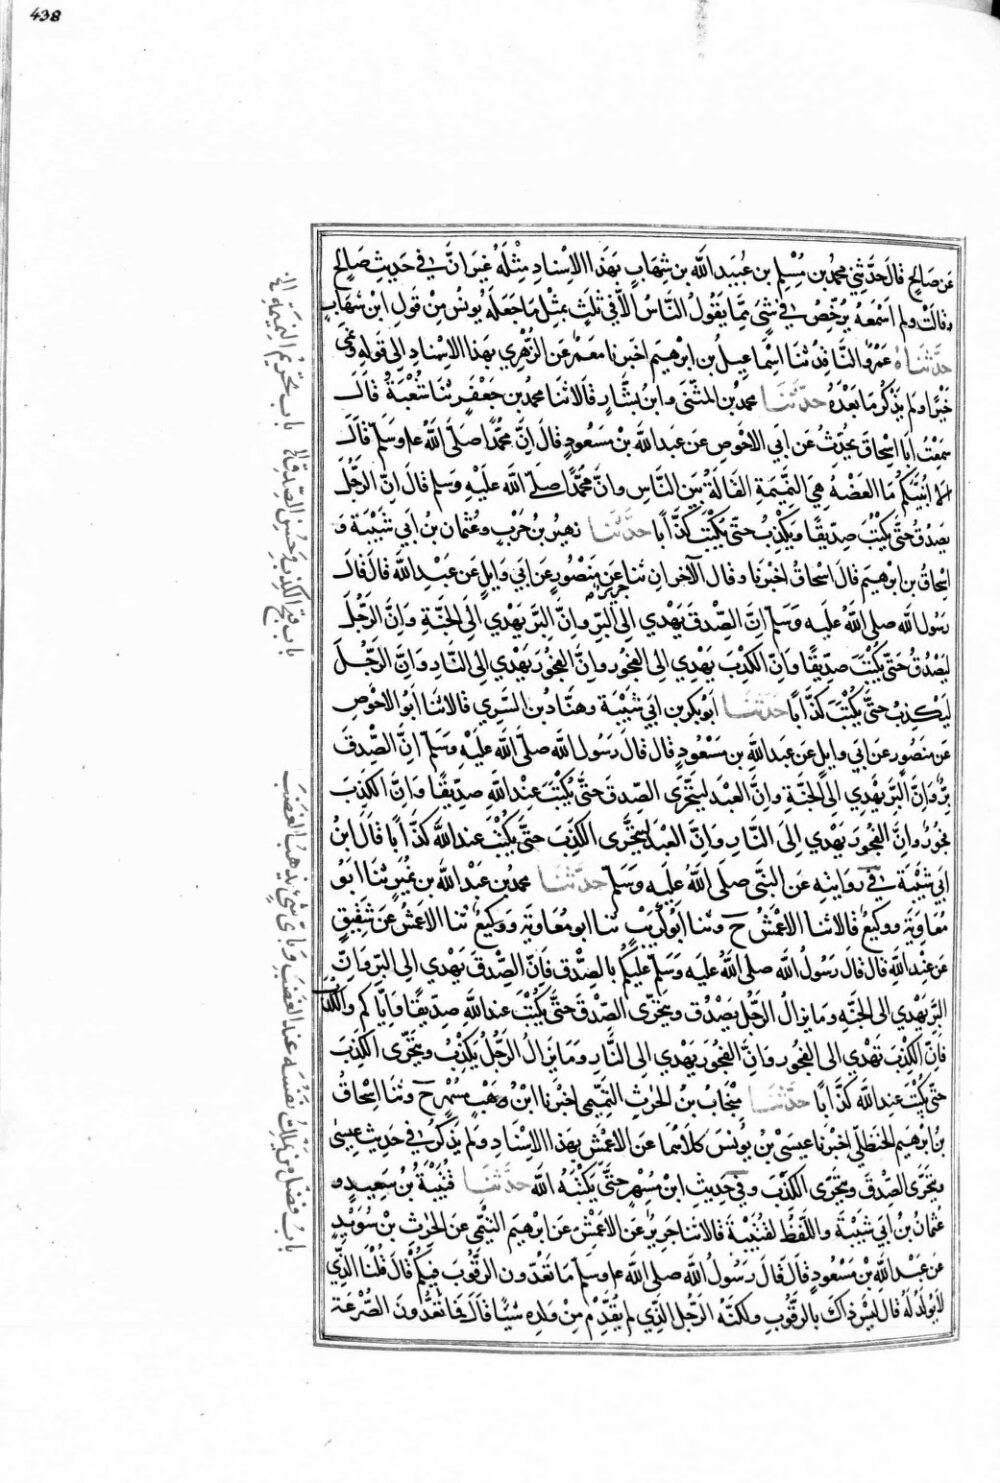 438
عن صالح قال حدثني محمد بن مسلم بن عبيد الله بن شهاب بهذا الاسناد مثله غير ان في حديث صالح
وقالت ولم اسمعه يرخص في شئ مما يقول الناس الا في ثلث بمثل ما جعله يونس من قول ابن شهاب
حدثناه عمرو الناقد ثنا اسماعيل بن ابرهيم اخبرنا معمر عن الزهري بهذا الاسناد الى قوله ونمى
خيرا ولم يذكر ما بعده حدثنا محمد بن المثنى وابن بشار قالا ثنا محمد بن جعفر ثنا شعبة قال
سمعت ابا اسحاق يحدث عن ابي الاحوص عن عبد الله بن مسعود قال ان محمدا صلى الله عليه وسلم قال
الا انبئكم ما العضه هي النميمة القالة بين الناس وان محمدا صلى الله عليه وسلم قال ان الرجل
يصدق حتى يكتب صديقا ويكذب حتى يكتب كذابا حدثنا زهير بن حرب وعثمان بن ابي شيبة و
اسحاق بن ابرهيم قال اسحاق اخبرنا وقال الآخران ثنا جرير عن منصور عن ابي وايل عن عبد الله قال قال
رسول الله صلى الله عليه وسلم ان الصدق يهدي الى البر وان البر يهدي الى الجنة وان الرجل
ليصدق حتى يكتب صديقا وان الكذب يهدي الى الفجور وان الفجور يهدي الى النار وان الرجل
ليكذب حتى يكتب كذابا حدثنا ابو بكر بن ابي شيبة وهناد بن السري قالا ثنا ابو الاحوص
عن منصور عن ابي وايل عن عبد الله بن مسعود قال قال رسول الله صلى الله عليه وسلم ان الصدق
بر وان البر يهدي الى الجنة وان العبد ليتحرى الصدق حتى يكتب عند الله صديقا وان الكذب
فجور وان الفجور يهدي الى النار وان العبد ليتحرى الكذب حتى يكتب عند الله كذابا قال ابن
ابي شيبة في روايته عن النبى صلى الله عليه وسلم حدثنا محمد بن عبد الله بن نمير ثنا ابو
معاوية ووكيع قالا ثنا الاعمش ح وثنا ابو كريب ثنا ابو معاوية ووكيع ثنا الاعمش عن شقيق
عن عبد الله قال قال رسول الله صلى الله عليه وسلم عليكم بالصدق فان الصدق يهدي الى البر وان
البر يهدي الى الجنة وما يزال الرجل يصدق ويتحرى الصدق حتى يكتب عند الله صديقا واياكم والكذب
فان الكذب يهدي الى الفجور وان الفجور يهدي الى النار وما يزال الرجل يكذب ويتحرى الكذب
حتى يكتب عند الله كذابا حدثنا منجاب بن الحرث التميمي اخبرنا ابن مسهر ح وثنا اسحاق
بن ابرهيم الحنظلي اخبرنا عيسى بن يونس كلاهما عن الاعمش بهذا الاسناد ولم يذكر في حديث عيسى
ويتحرى الصدق ويتحرى الكذب وفي حديث ابن مسهر حتى يكتبه الله حدثنا قتيبة بن سعيد و
عثمان بن ابي شيبة واللفظ لقتيبة قالا ثنا جرير عن الاعمش عن ابرهيم التيمي عن الحرث بن سويد
عن عبد الله بن مسعود قال قال رسول الله صلى الله عليه وسلم ما تعدون الرقوب فيكم قال قلنا الذي
لا يولد له قال ليس ذاك بالرقوب ولكنه الرجل الذي لم يقدم من ولده شيئا قال فما تعدون الصرعة
باب تحريم النميمة
باب قبح الكذب وحسن الصدق
باب فضل من يملك نفسه عند الغضب وباى شئ يذهب الغضب